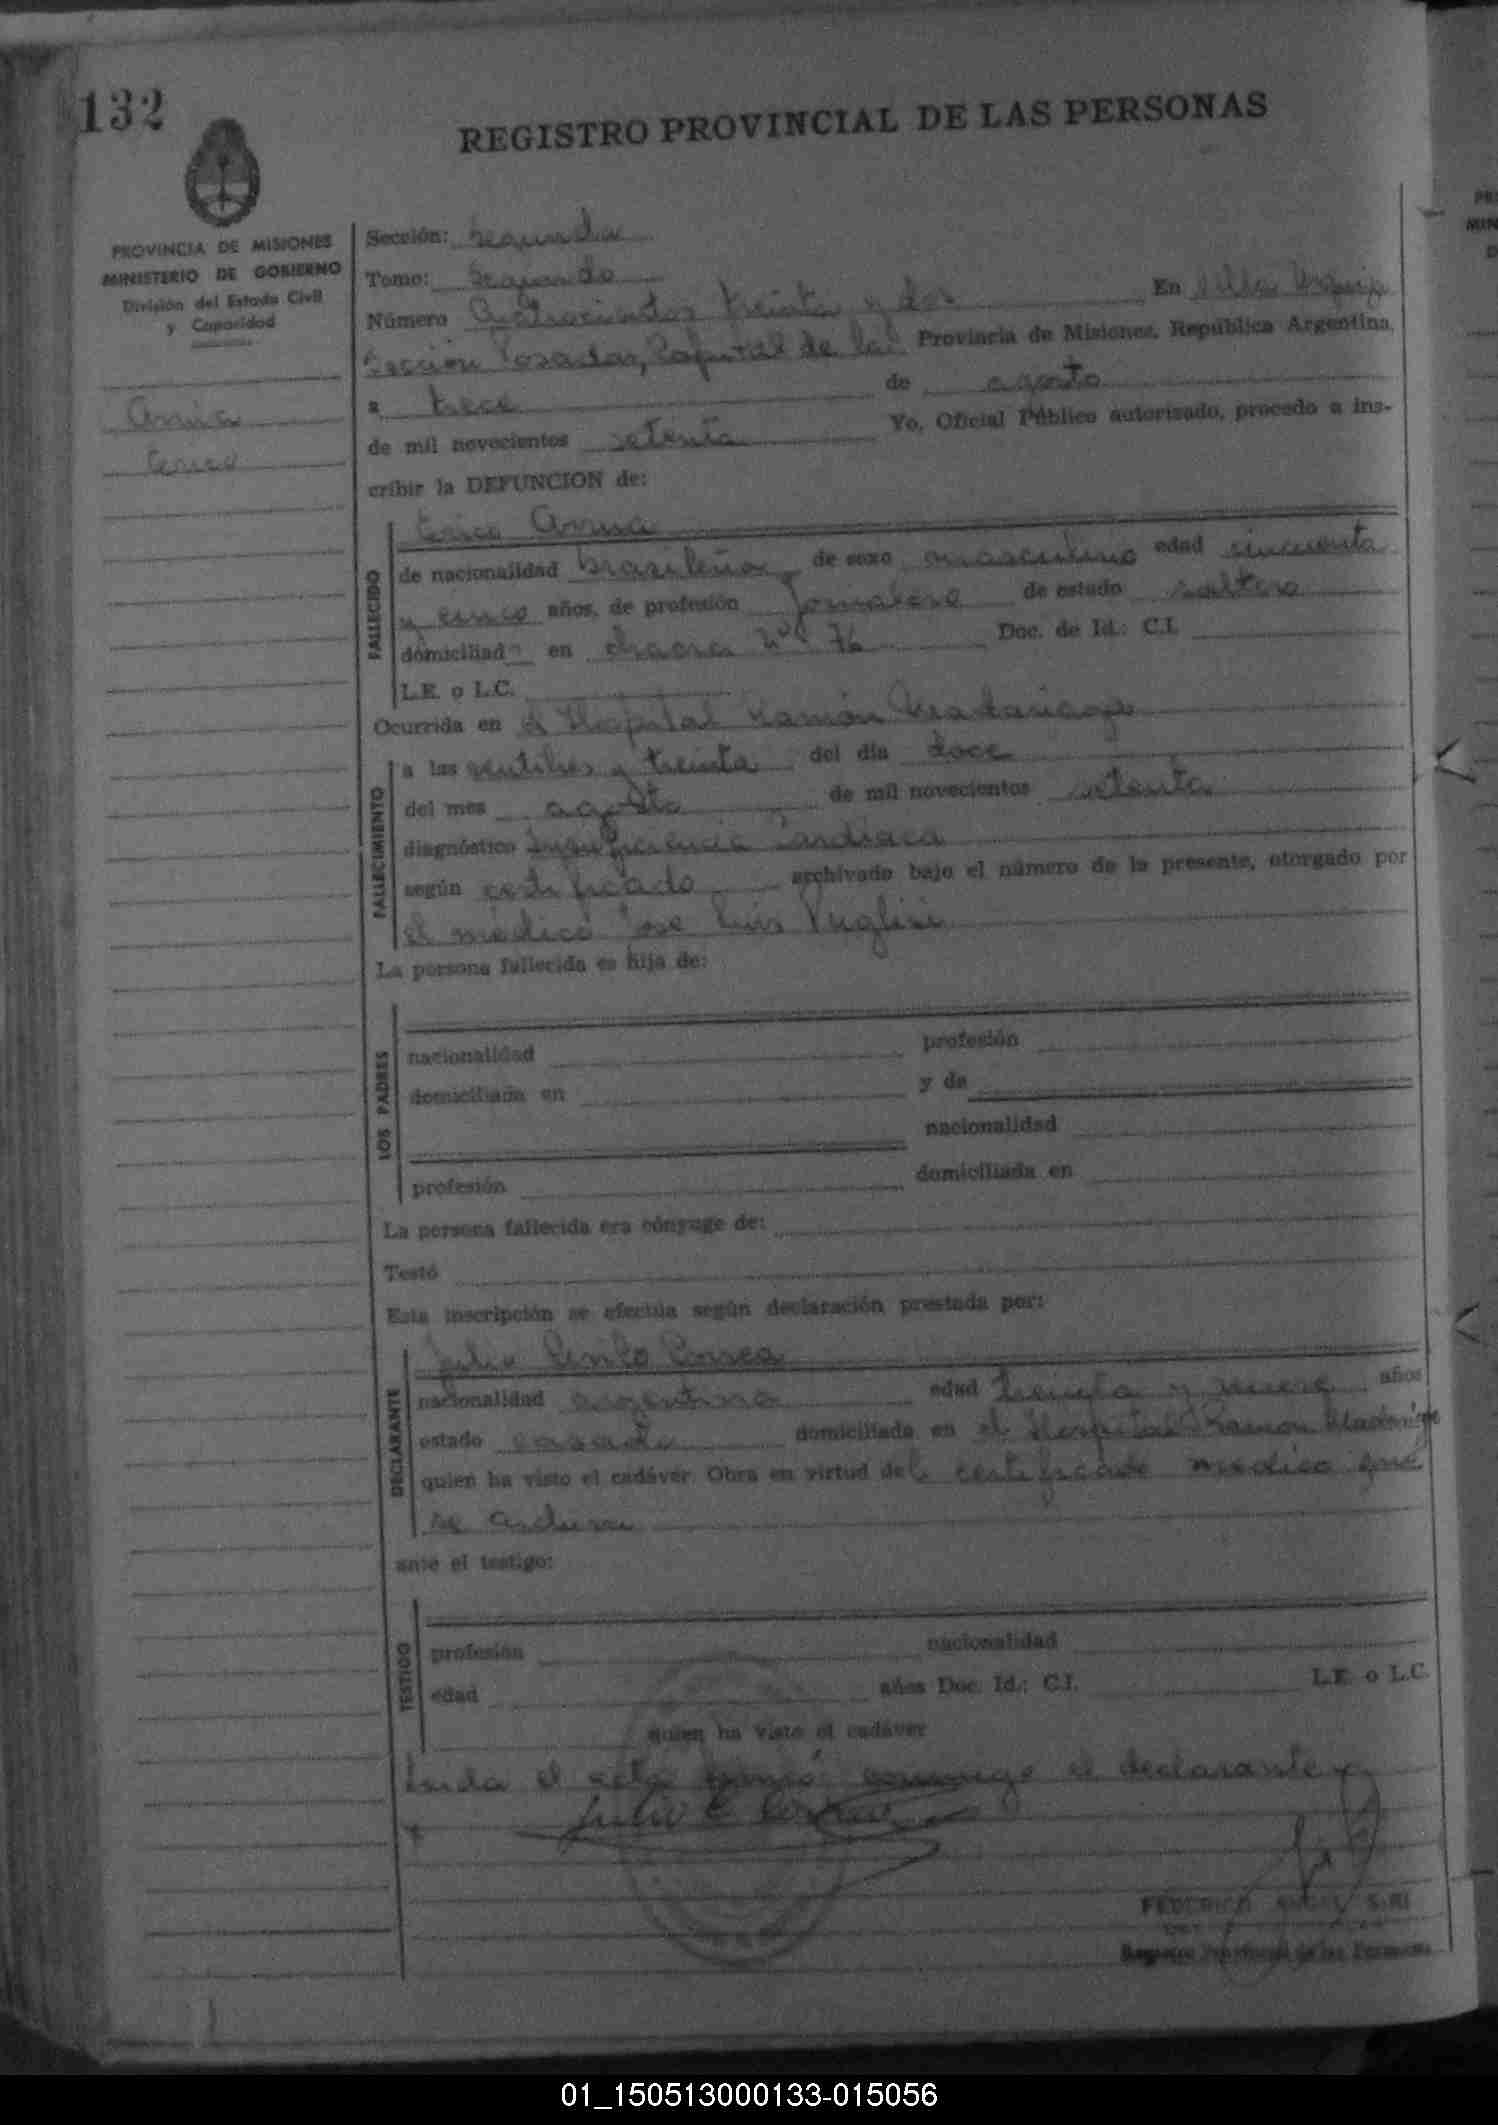 132
REGISTRO PROVINCIAL DE LAS PERSONAS
PROVINCIA DE MISIONES
MINISTERIO DE GOBIERNO
División del Estado Civil
y Capacidad
Sección: Segunda
Tomo: Segundo
Número Cuatrocientos treinta y dos En Villa Urquiza
Sección Posadas, Capital de la Provincia de Misiones, República Argentina,
a trece de agosto
de mil novecientos setenta Yo, Oficial Público autorizado, procedo a ins-
cribir la DEFUNCION de:
FALLECIDO
de nacionalidad brasileña de sexo masculino edad cincuenta
y cinco años, de profesión Jornalero de estado soltero
domiciliad° en chacra Nº 76 Doc. de Id.: C.I.
L.E. o L.C.
Ocurrida en el Hospital Ramón Madariaga
FALLECIMIENTO
a las veintitres y treinta del día doce
del mes agosto de mil novecientos setenta
diagnóstico Insuficiencia Cardiaca
según certificado archivado bajo el número de la presente, otorgado por
el médico Jose Luis Puglisi
La persona fallecida es hija de:
LOS PADRES
nacionalidad profesión
domiciliada en y de
nacionalidad
profesión domiciliada en
La persona fallecida era cónyuge de:
Testó
Esta inscripción se efectúa según declaración prestada por:
DECLARANTE
Julio Correa
nacionalidad argentina edad treinta y nueve años
estado casado domiciliada en el Hospital Ramon Madariaga
quien ha visto el cadáver. Obra en virtud del certificado médico que
se archiva
ante el testigo:
TESTIGO
profesión nacionalidad
edad años Doc. Id.: C.I. L.E. o L.C.
quien ha visto el cadáver
Leida el acta firmó conmigo el declarante
FEDERICO
Registro Provincial de las Personas
PR
MIN
D
01_150513000133-015056